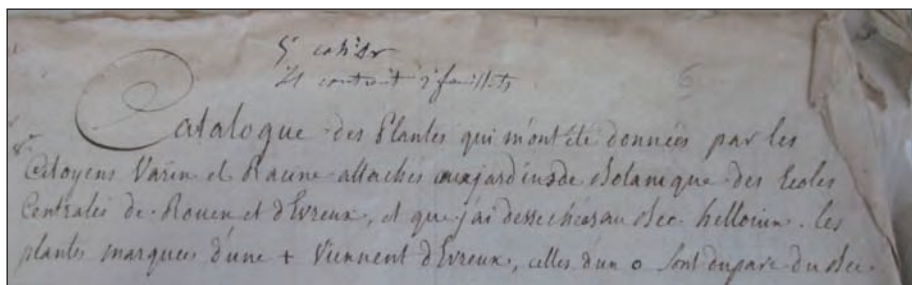 5e cahier
Il contient 2 feuillets
6
Catalogue des Plantes qui m'ont été données par les
Citoyens Varin et Racine attachés aux jardins de Botanique des Ecoles
Centrales de Rouen et d'Evreux, et que j'ai dessechées au Bec-hellouin. les
plantes marquées d'une + Viennent d'Evreux, celles d'un o sont du parc du Bec.